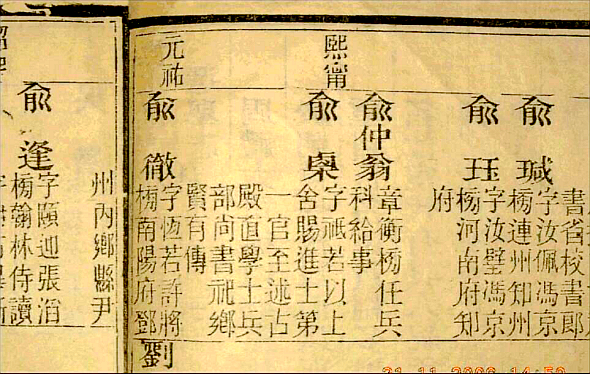 書省校書郎
兪瑊
字汝佩馮京
榜連州知州
兪珏
字汝璧馮京
榜河南府知
府
熙甯
兪仲翁
章衡榜任兵
科給事
兪㮚
字祗若以上
舍賜進士第
一官至述古
殿直學士兵
部尚書祀鄉
賢有傳
元祐
兪徹
字恆若許將
榜南陽府鄧
劉
州內鄉縣尹
兪逢
字頤迦張滔
榜翰林侍讀